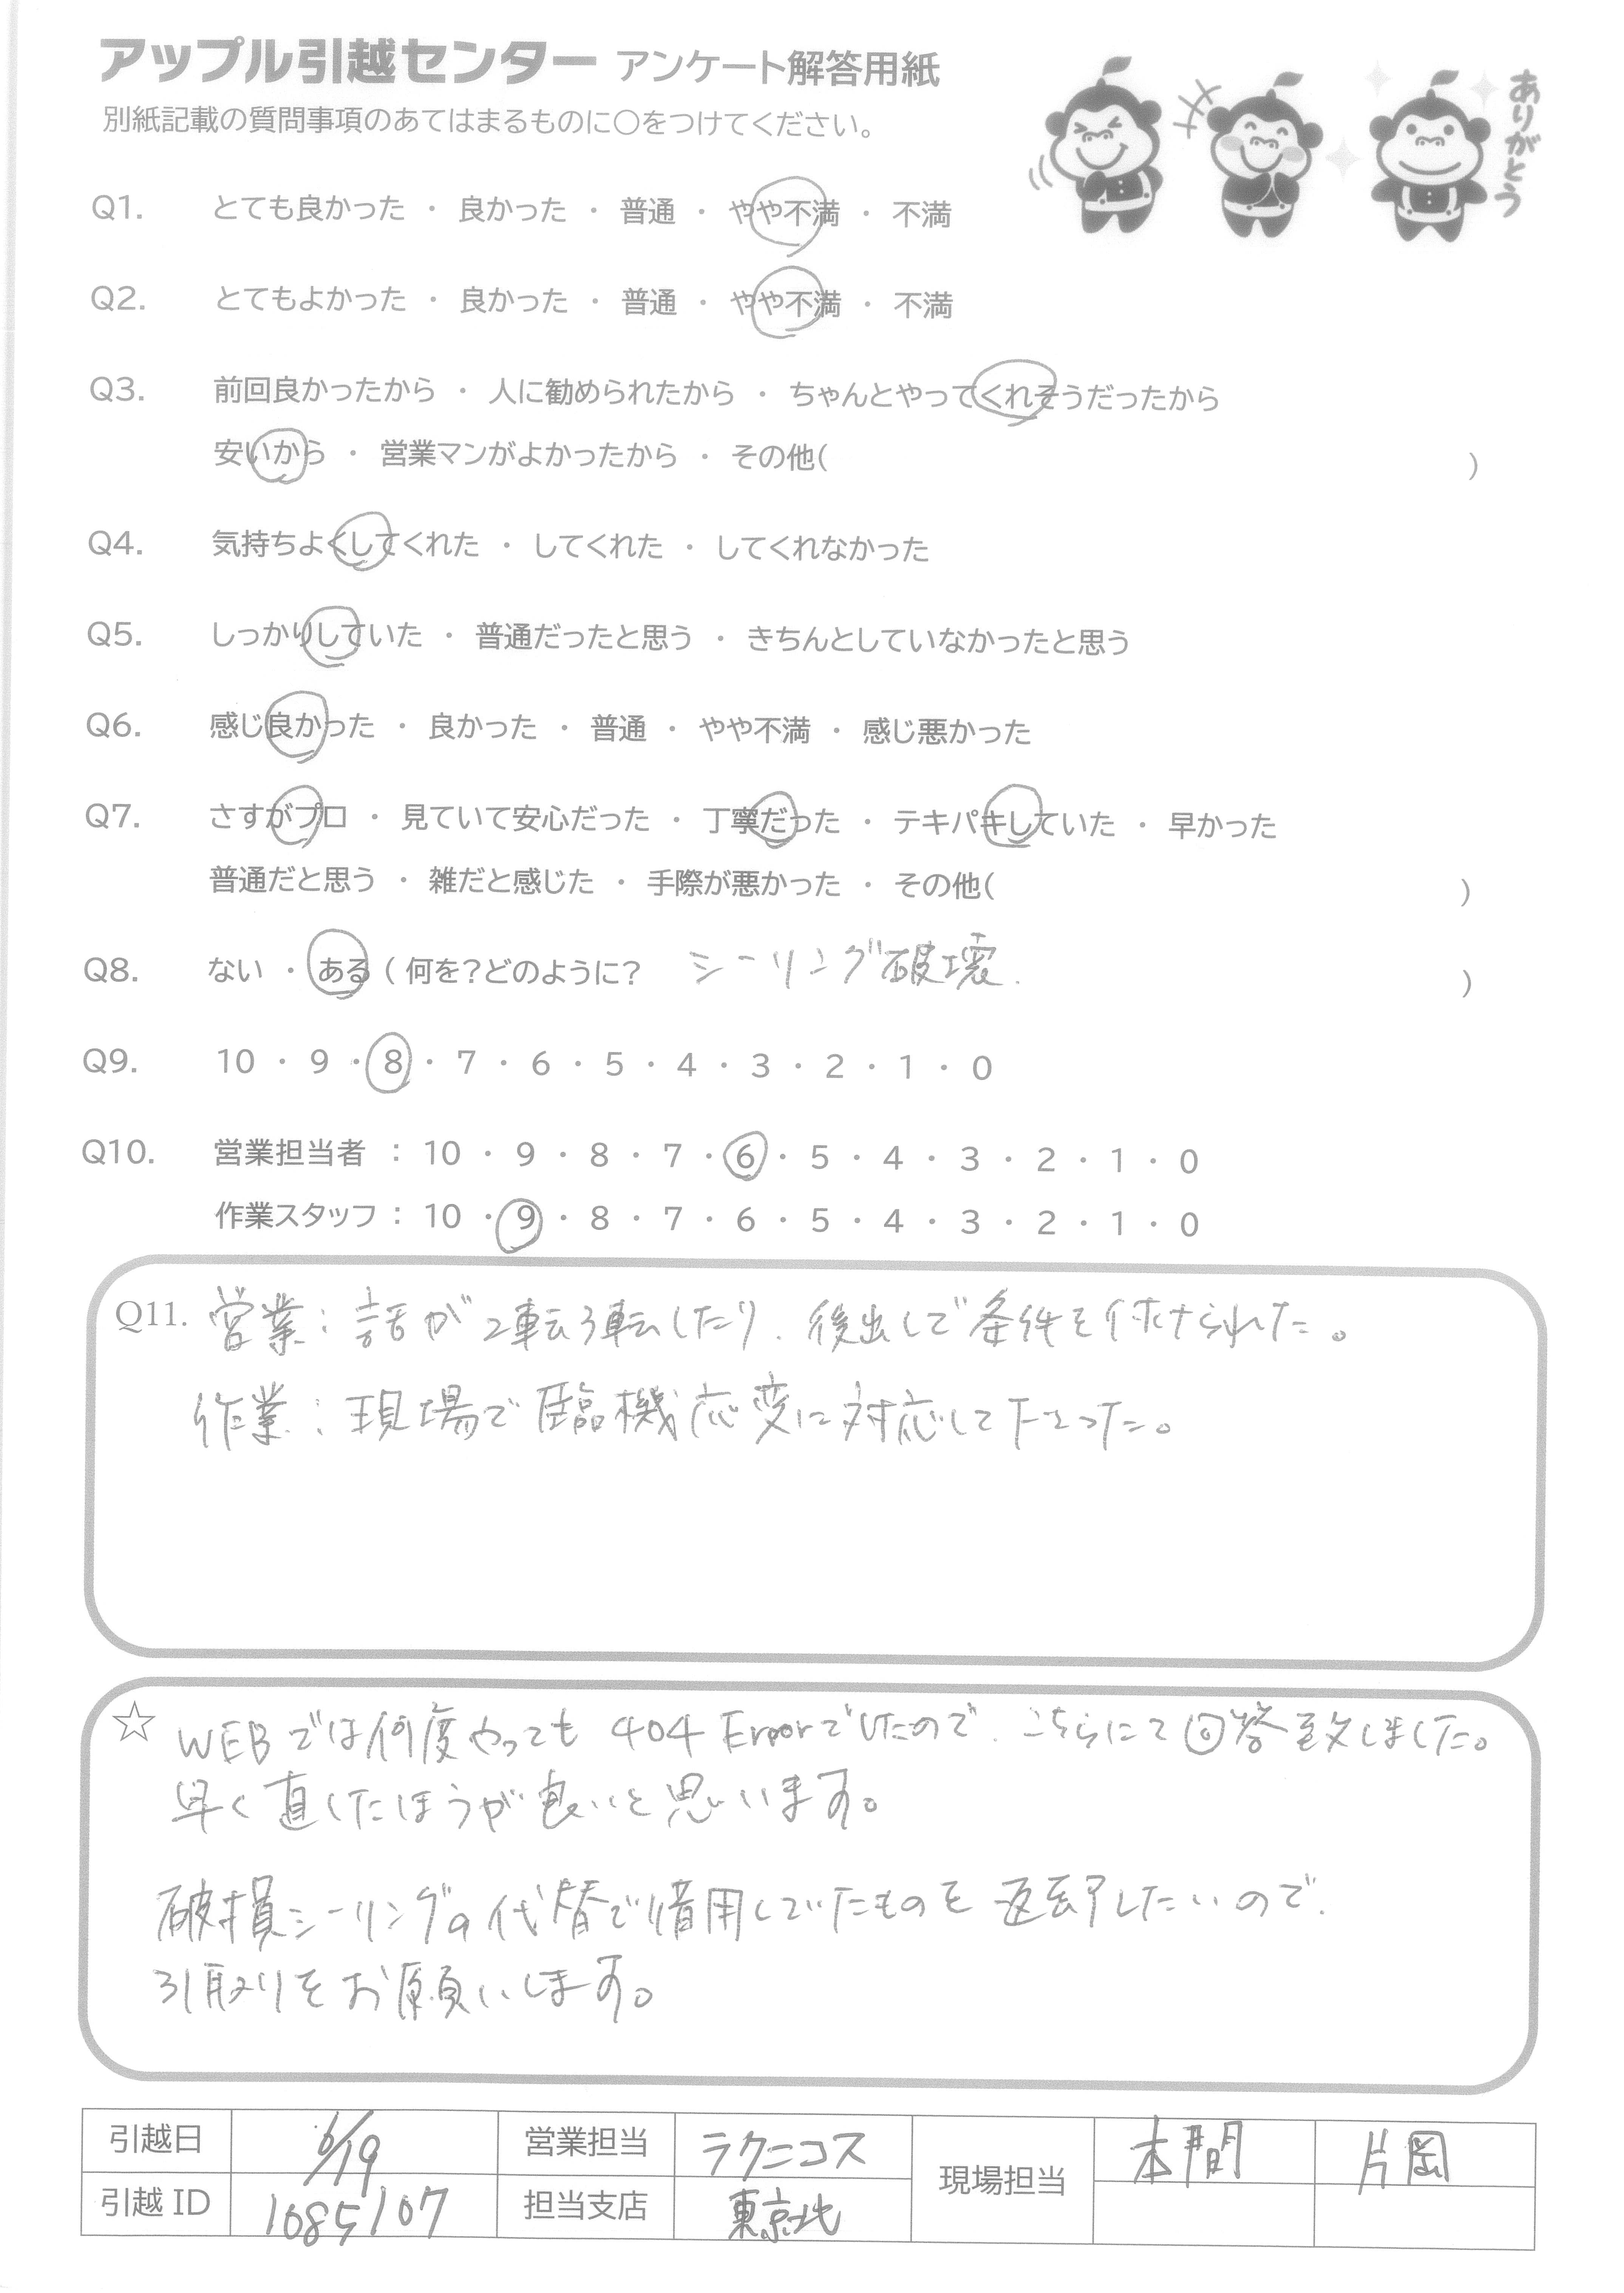 アップル引越センター アンケート解答用紙
別紙記載の質問事項のあてはまるものに○をつけてください。
ありがとう
Q1. とても良かった ・ 良かった ・ 普通 ・ やや不満 ・ 不満
Q2. とてもよかった ・ 良かった ・ 普通 ・ やや不満 ・ 不満
Q3. 前回良かったから ・ 人に勧められたから ・ ちゃんとやってくれそうだったから
安いから ・ 営業マンがよかったから ・ その他( )
Q4. 気持ちよくしてくれた ・ してくれた ・ してくれなかった
Q5. しっかりしていた ・ 普通だったと思う ・ きちんとしていなかったと思う
Q6. 感じ良かった ・ 良かった ・ 普通 ・ やや不満 ・ 感じ悪かった
Q7. さすがプロ ・ 見ていて安心だった ・ 丁寧だった ・ テキパキしていた ・ 早かった
普通だと思う ・ 雑だと感じた ・ 手際が悪かった ・ その他( )
Q8. ない ・ ある ( 何を?どのように? シーリング破壊. )
Q9. 10 ・ 9 ・ 8 ・ 7 ・ 6 ・ 5 ・ 4 ・ 3 ・ 2 ・ 1 ・ 0
Q10. 営業担当者 : 10 ・ 9 ・ 8 ・ 7 ・ 6 ・ 5 ・ 4 ・ 3 ・ 2 ・ 1 ・ 0
作業スタッフ : 10 ・ 9 ・ 8 ・ 7 ・ 6 ・ 5 ・ 4 ・ 3 ・ 2 ・ 1 ・ 0
Q11. 営業:話が2転3転したり、後出しで条件を付けられた。
作業:現場で臨機応変に対応して下さった。
☆ WEBでは何度やっても 404 Errorでしたので、こちらにて回答致しました。
早く直したほうが良いと思います。
破損シーリングの代替で借用していたものを返却したいので、
引取りをお願いします。
引越日 6/19 営業担当 ラクニコス 現場担当 本間 片岡
引越ID 1085107 担当支店 東京北